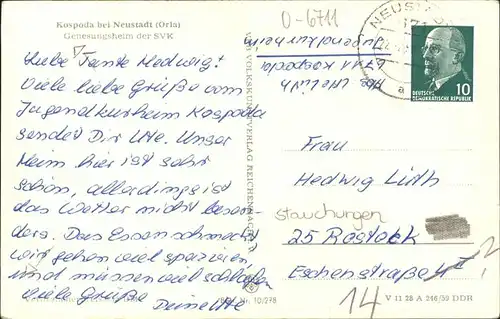 Kospoda bei Neustadt (Orla)
Genesungsheim der SVK
Liebe Tante Hedwig!
Viele liebe Grüße vom
Jugendkurheim Kospoda
sendet Dir Ute. Unser
Heim hier ist sehr
schön, allerdings ist
das Wetter nicht beson-
ders. Das Essen schmeckt
wir gehen viel spazieren,
und müssen viel schlafen
Viele Grüße
Deine Ute
VEB VOLKSKUNSTVERLAG REICHENBACH
Nr. 10/978
0-6711
Jugendkurheim
Kospoda
NEUSTADT
a
DEUTSCHE
DEMOKRATISCHE REPUBLIK
10
Frau
Hedwig Lüth
Stauchungen
25 Rostock
Eschenstraße
?
14
V 11 28 A 246/59 DDR